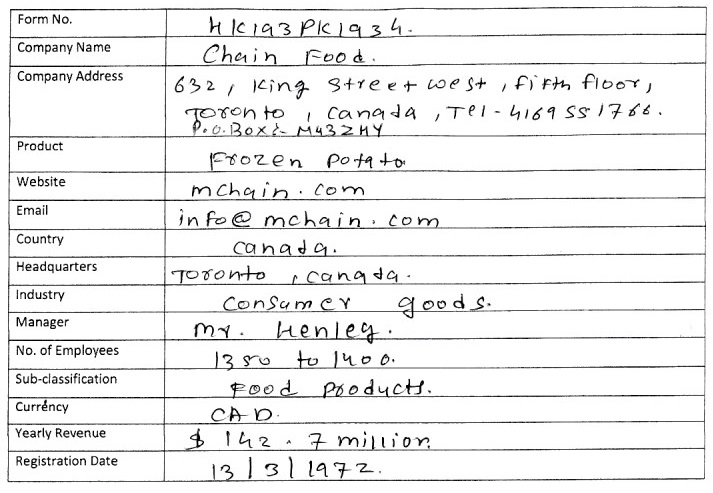 Form No. HK193PK1934.
Company Name Chain Food.
Company Address 632, King Street west, fifth floor,
Toronto, Canada, Tel - 4169551766.
P.O.Box:- M432HY
Product Frozen Potato
Website mchain.com
Email info@mchain.com
Country Canada.
Headquarters Toronto, Canada.
Industry Consumer goods.
Manager Mr. Henley.
No. of Employees 1350 to 1400.
Sub-classification Food Products.
Currency CAD.
Yearly Revenue $ 142.7 million
Registration Date 13/3/1972.